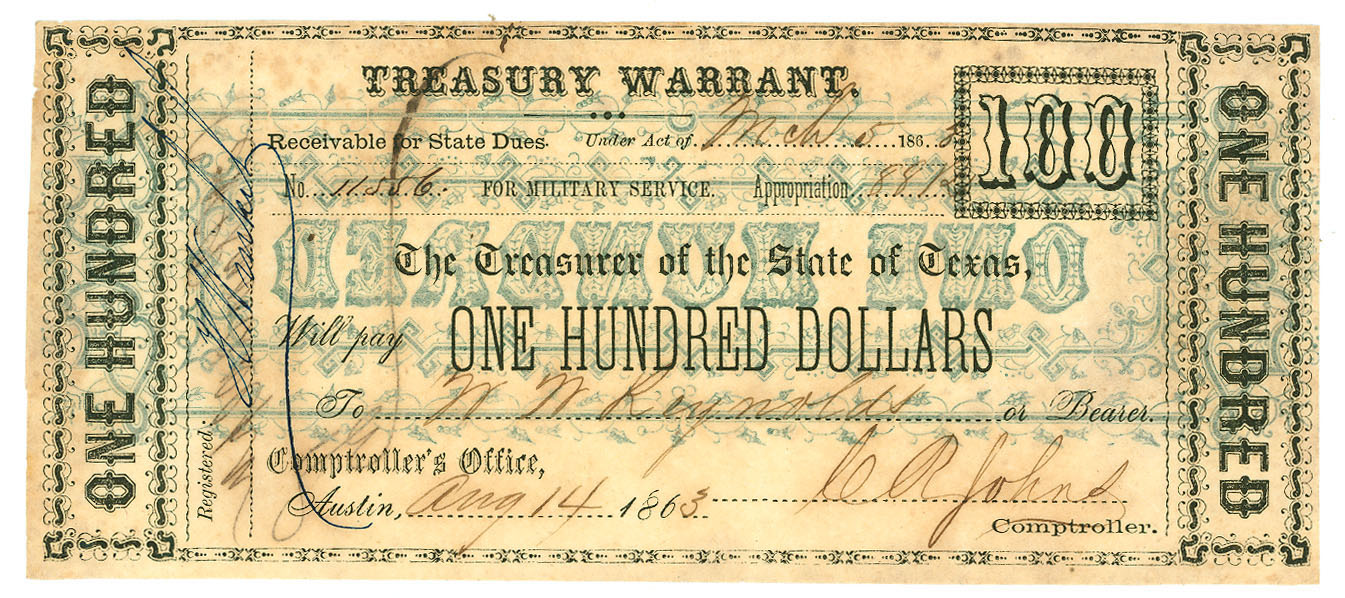 ONE HUNDRED
TREASURY WARRANT.
Receivable for State Dues. Under Act of Mch 5 1863
100
No. 11556. FOR MILITARY SERVICE. Appropriation 881
ONE HUNDRED
The Treasurer of the State of Texas,
Will pay ONE HUNDRED DOLLARS
To W W Reynolds or Bearer.
Registered:
Comptroller's Office,
Austin, Aug 14 1863 C R Johns
Comptroller.
ONE HUNDRED